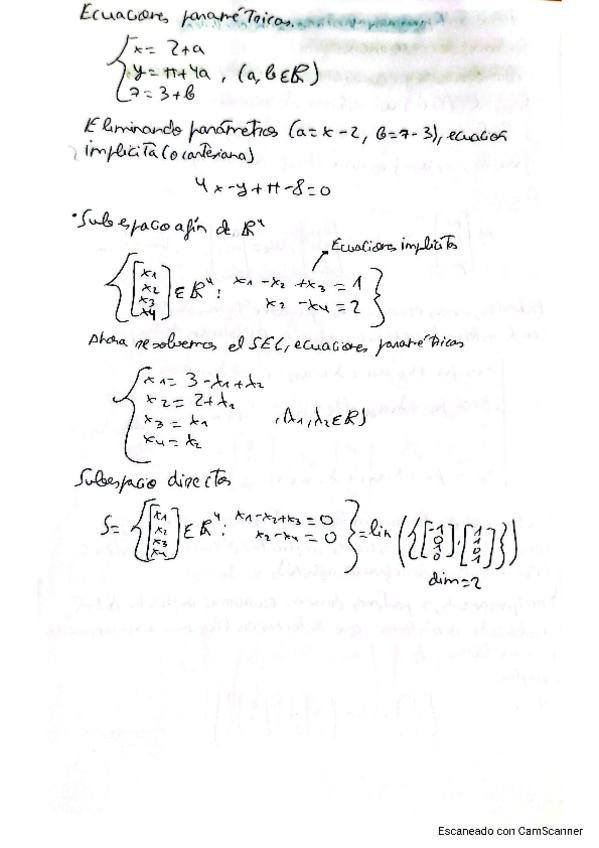 Ecuaciones paramétricas.
x = 2+a
y = π+4a , (a, b ∈ ℝ)
z = 3+b
Eliminando parámetros (a = x-2, b = z-3), ecuación
implícita (o cartesiana)
4x-y+π-8=0
• Subespacio afín de ℝ⁴
Ecuaciones implícitas
{ [x1 x2 x3 x4] ∈ ℝ⁴ : x1 - x2 + x3 = 1
x2 - x4 = 2 }
Ahora resolvemos el SEL, ecuaciones paramétricas
x1 = 3 - λ1 + λ2
x2 = 2 + λ2
x3 = λ1 , (λ1, λ2 ∈ ℝ)
x4 = λ2
Subespacio director
S = { [x1 x2 x3 x4] ∈ ℝ⁴ : x1 - x2 + x3 = 0
x2 - x4 = 0 } = lin ({ [-1 0 1 0], [1 1 0 1] })
dim = 2
Escaneado con CamScanner